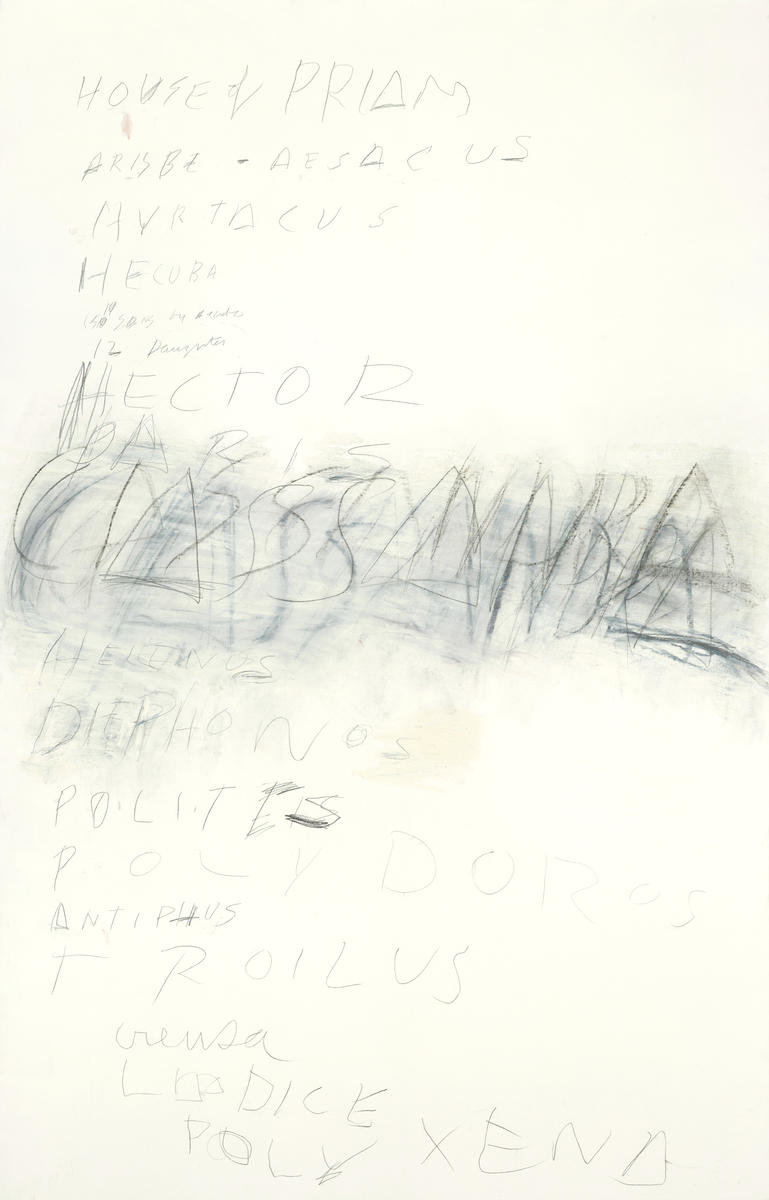 HOUSE of PRIAM
ARISBE - AESACUS
HYRTACUS
HECUBA
19 SONS by
12 Daughters
HECTOR
PARIS
CASSANDRA
HELENOS
DIEPHONOS
POLITES
POLYDOROS
ANTIPHUS
TROILUS
creusa
LAODICE
POLYXENA